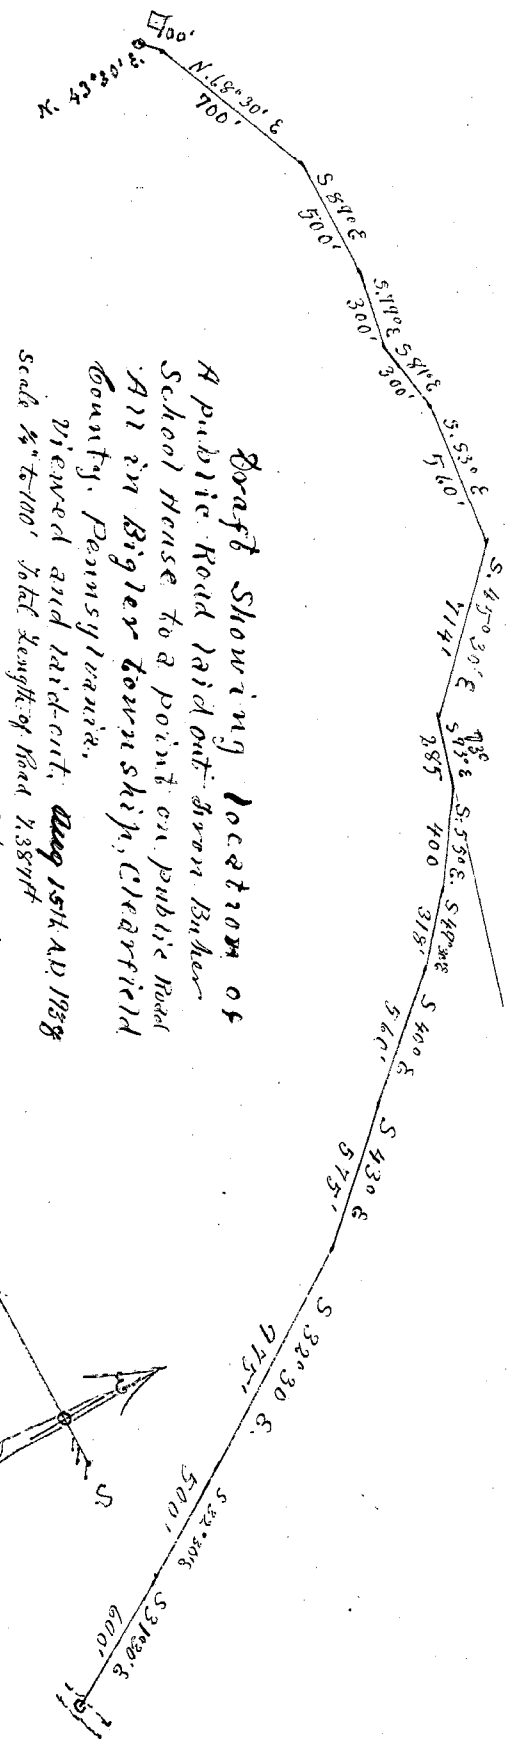 100'
N. 43°30' E.
N. 68°30' E
700'
S 89° E
500'
S. 79° E
300'
S 81° E
300'
S. 53° E
560'
S. 45°30' E
714'
S 43° E
285
S. 55° E.
400
318'
S 40° E
560'
S 43° E
575'
S 32°30 E.
975'
S 32°30' E
500'
S 31°30' E
600'
Draft Showing location of
A public Road laid out from
School House to a point on public Road
All in Bigler township, Clearfield
County, Pennsylvania.
Viewed and laid-out, Aug 15th A.D. 1938
Scale ¼" to 100' Total Length of Road 7.387ft
S